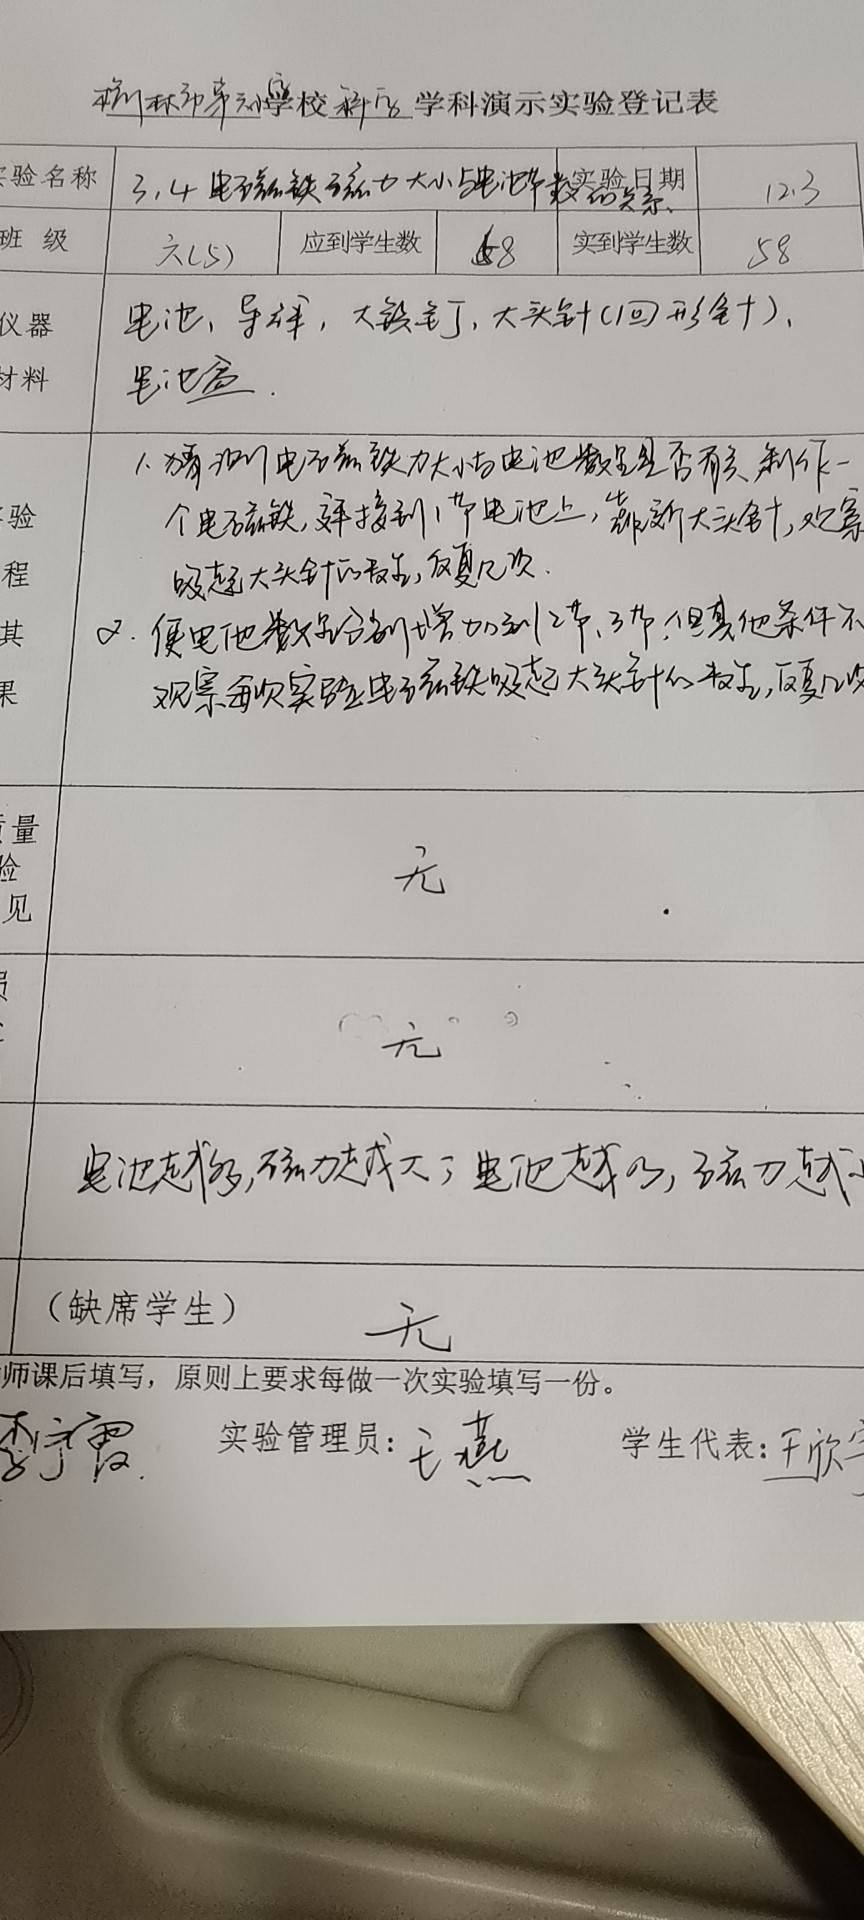 学校 学科演示实验登记表
验名称 3.4 电磁铁磁力大小与电池节数的关系. 实验日期 12.3
班 级 六(5) 应到学生数 58 实到学生数 58
仪器 电池、导线,大铁钉,大头针(回形针)、
材料 电池盒.
1.猜测电磁铁力大小与电池数量是否有关,制作一
验 个电磁铁,连接到1节电池上,靠近大头针,观察
程 吸起大头针的数量,反复几次.
其 2.使电池数量分别增加到2节、3节,但其他条件不
果 观察每次实验电磁铁吸起大头针的数量,反复几次
量
验 无
见
无
电池越多,磁力越大;电池越少,磁力越小
(缺席学生) 无
师课后填写,原则上要求每做一次实验填写一份。
实验管理员:王燕 学生代表:王欣